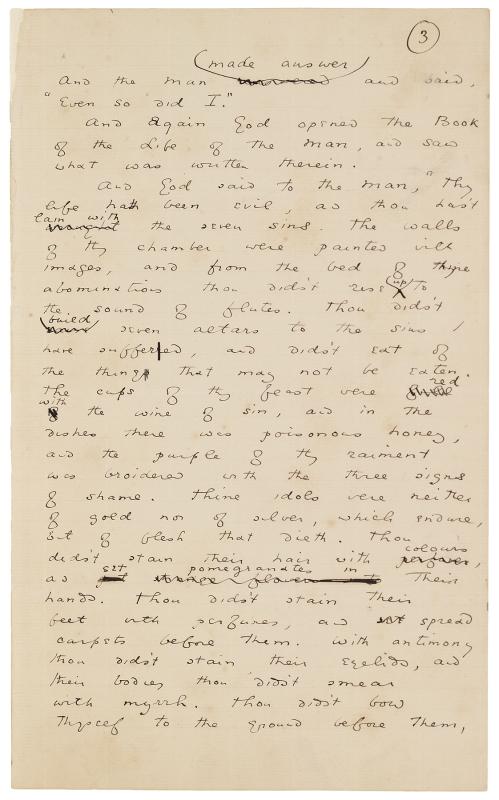 3
(made answer)
And the man answered and said,
"Even so did I."
And Again God opened the Book
of the Life of the man, and saw
what was written therein.
And God said to the man, "Thy
life hath been evil, as thou hast
lain with
the seven sins. The walls
of thy chamber were painted with
images, and from the bed of thine
abominations thou didst rise up to
the sound of flutes. Thou didst
build
seven altars to the sins I
have suffered, and didst eat of
the things that may not be eaten.
red
The cups of thy feast were
with
the wine of sin, and in the
dishes there was poisonous honey,
and the purple of thy raiment
was broidered with the three signs
of shame. Thine idols were neither
of gold nor of silver, which endure,
but of flesh that dieth. Thou
colours
didst stain their hair with perfumes,
set pomegranates in
and put strange flowers to their
hands. Thou didst stain their
feet with perfumes, and spread
carpets before them. With antimony
thou didst stain their eyelids, and
their bodies thou didst smear
with myrrh. Thou didst bow
thyself to the ground before them,